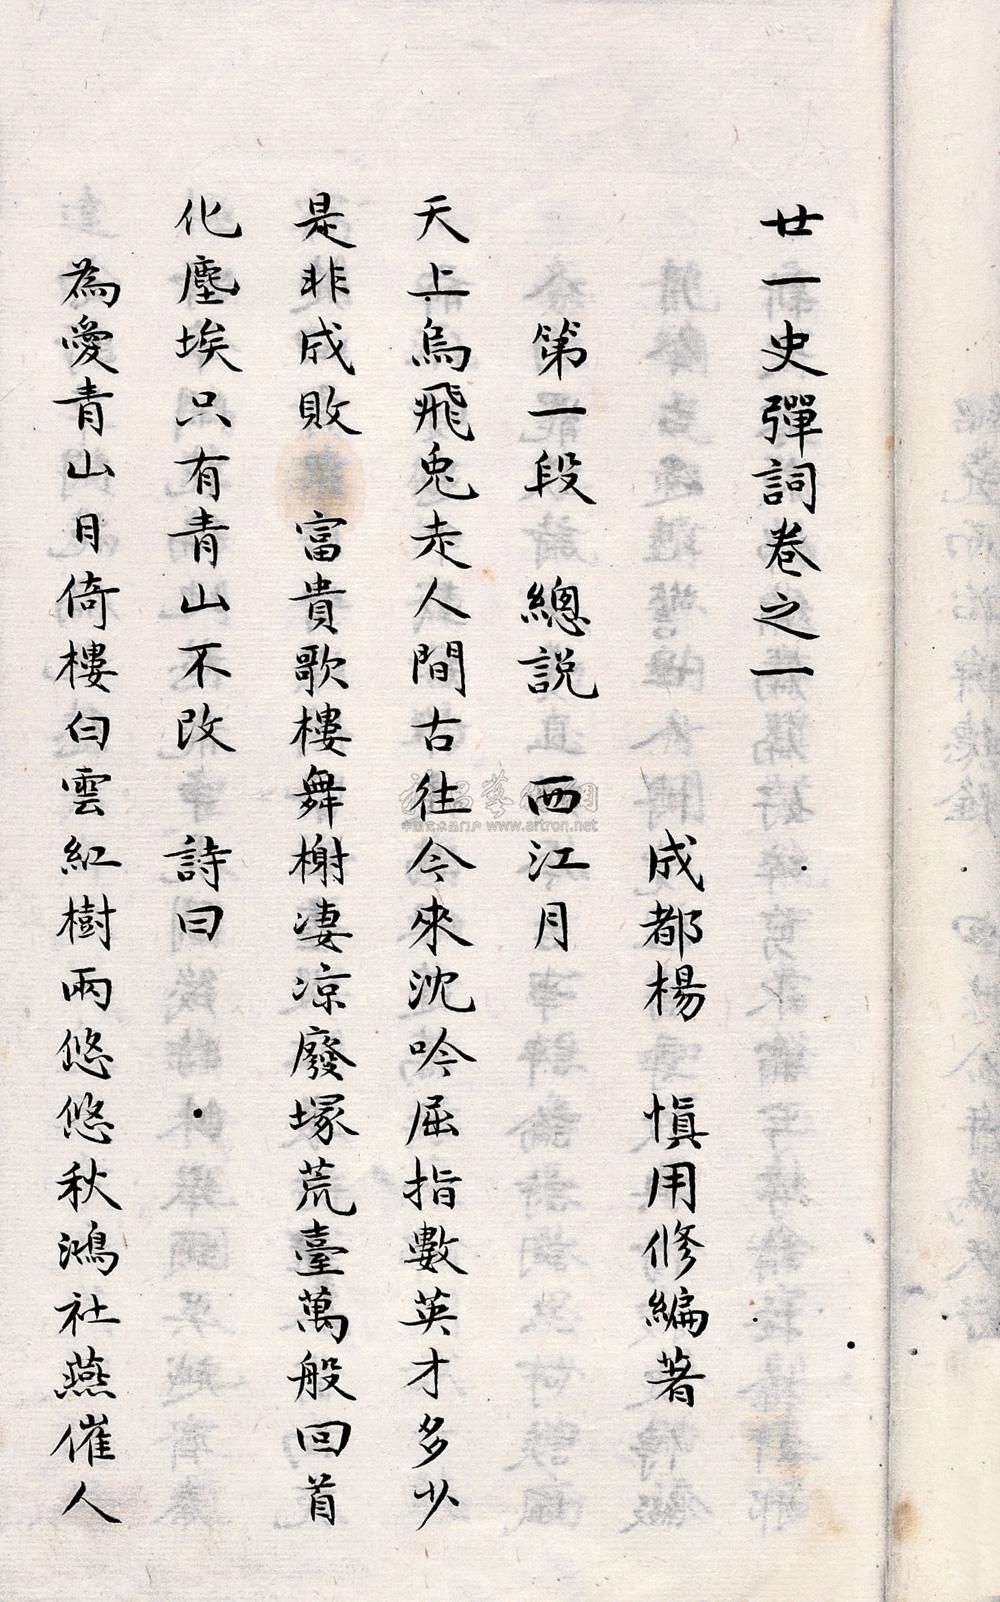 廿一史彈詞卷之一
成都楊 慎用修編著
第一段 總説 西江月
天上烏飛兎走人間古往今來沈吟屈指數英才多少
是非成敗 富貴歌樓舞榭凄凉廢塚荒臺萬般回首
化塵埃只有青山不改 詩曰
為愛青山日倚樓白雲紅樹兩悠悠秋鴻社燕催人
www.artron.net